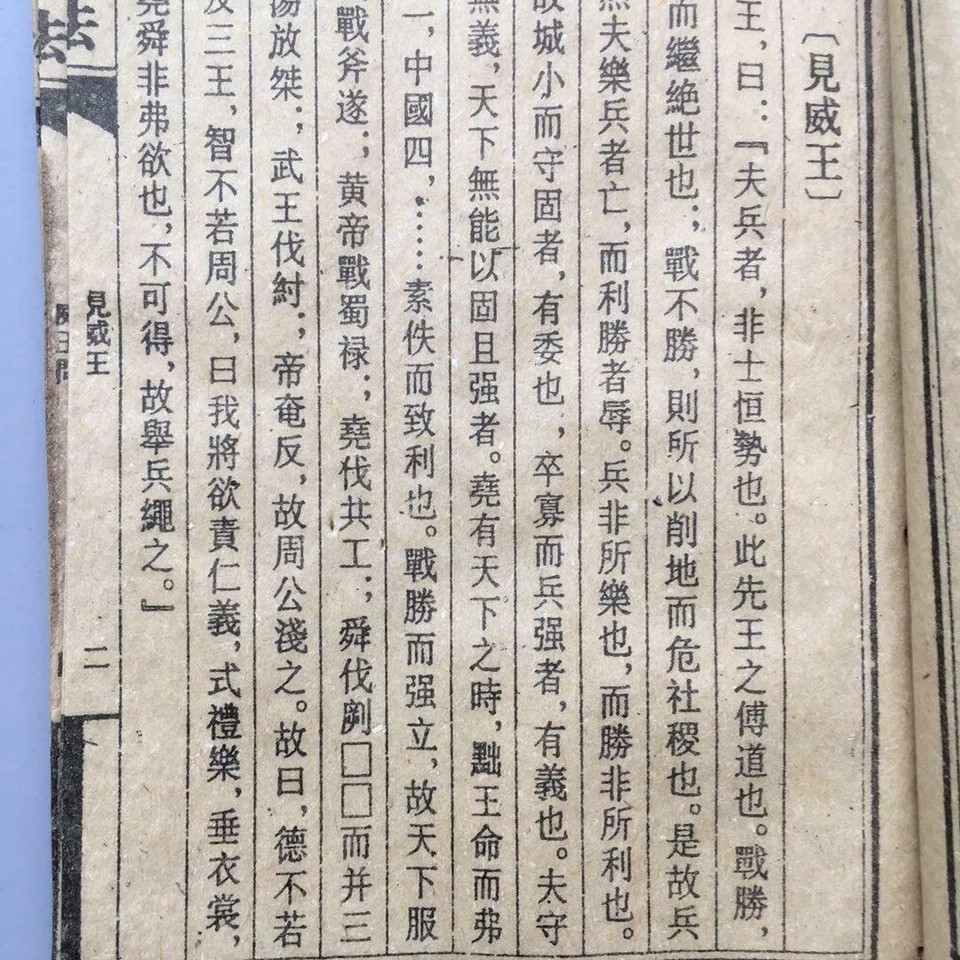 〔見威王〕
王，曰：『夫兵者，非士恒勢也。此先王之傅道也。戰勝，
而繼絶世也；戰不勝，則所以削地而危社稷也。是故兵
然夫樂兵者亡，而利勝者辱。兵非所樂也，而勝非所利也。
故城小而守固者，有委也，卒寡而兵强者，有義也。夫守
無義，天下無能以固且强者。堯有天下之時，黜王命而弗
一，中國四，……素佚而致利也。戰勝而强立，故天下服
戰斧遂；黄帝戰蜀禄；堯伐共工；舜伐劌□□而并三
湯放桀；武王伐紂；帝奄反，故周公淺之。故曰，德不若
及三王，智不若周公，曰我將欲責仁義，式禮樂，垂衣裳，
堯舜非弗欲也，不可得，故舉兵繩之。』
見威王
二
法
法